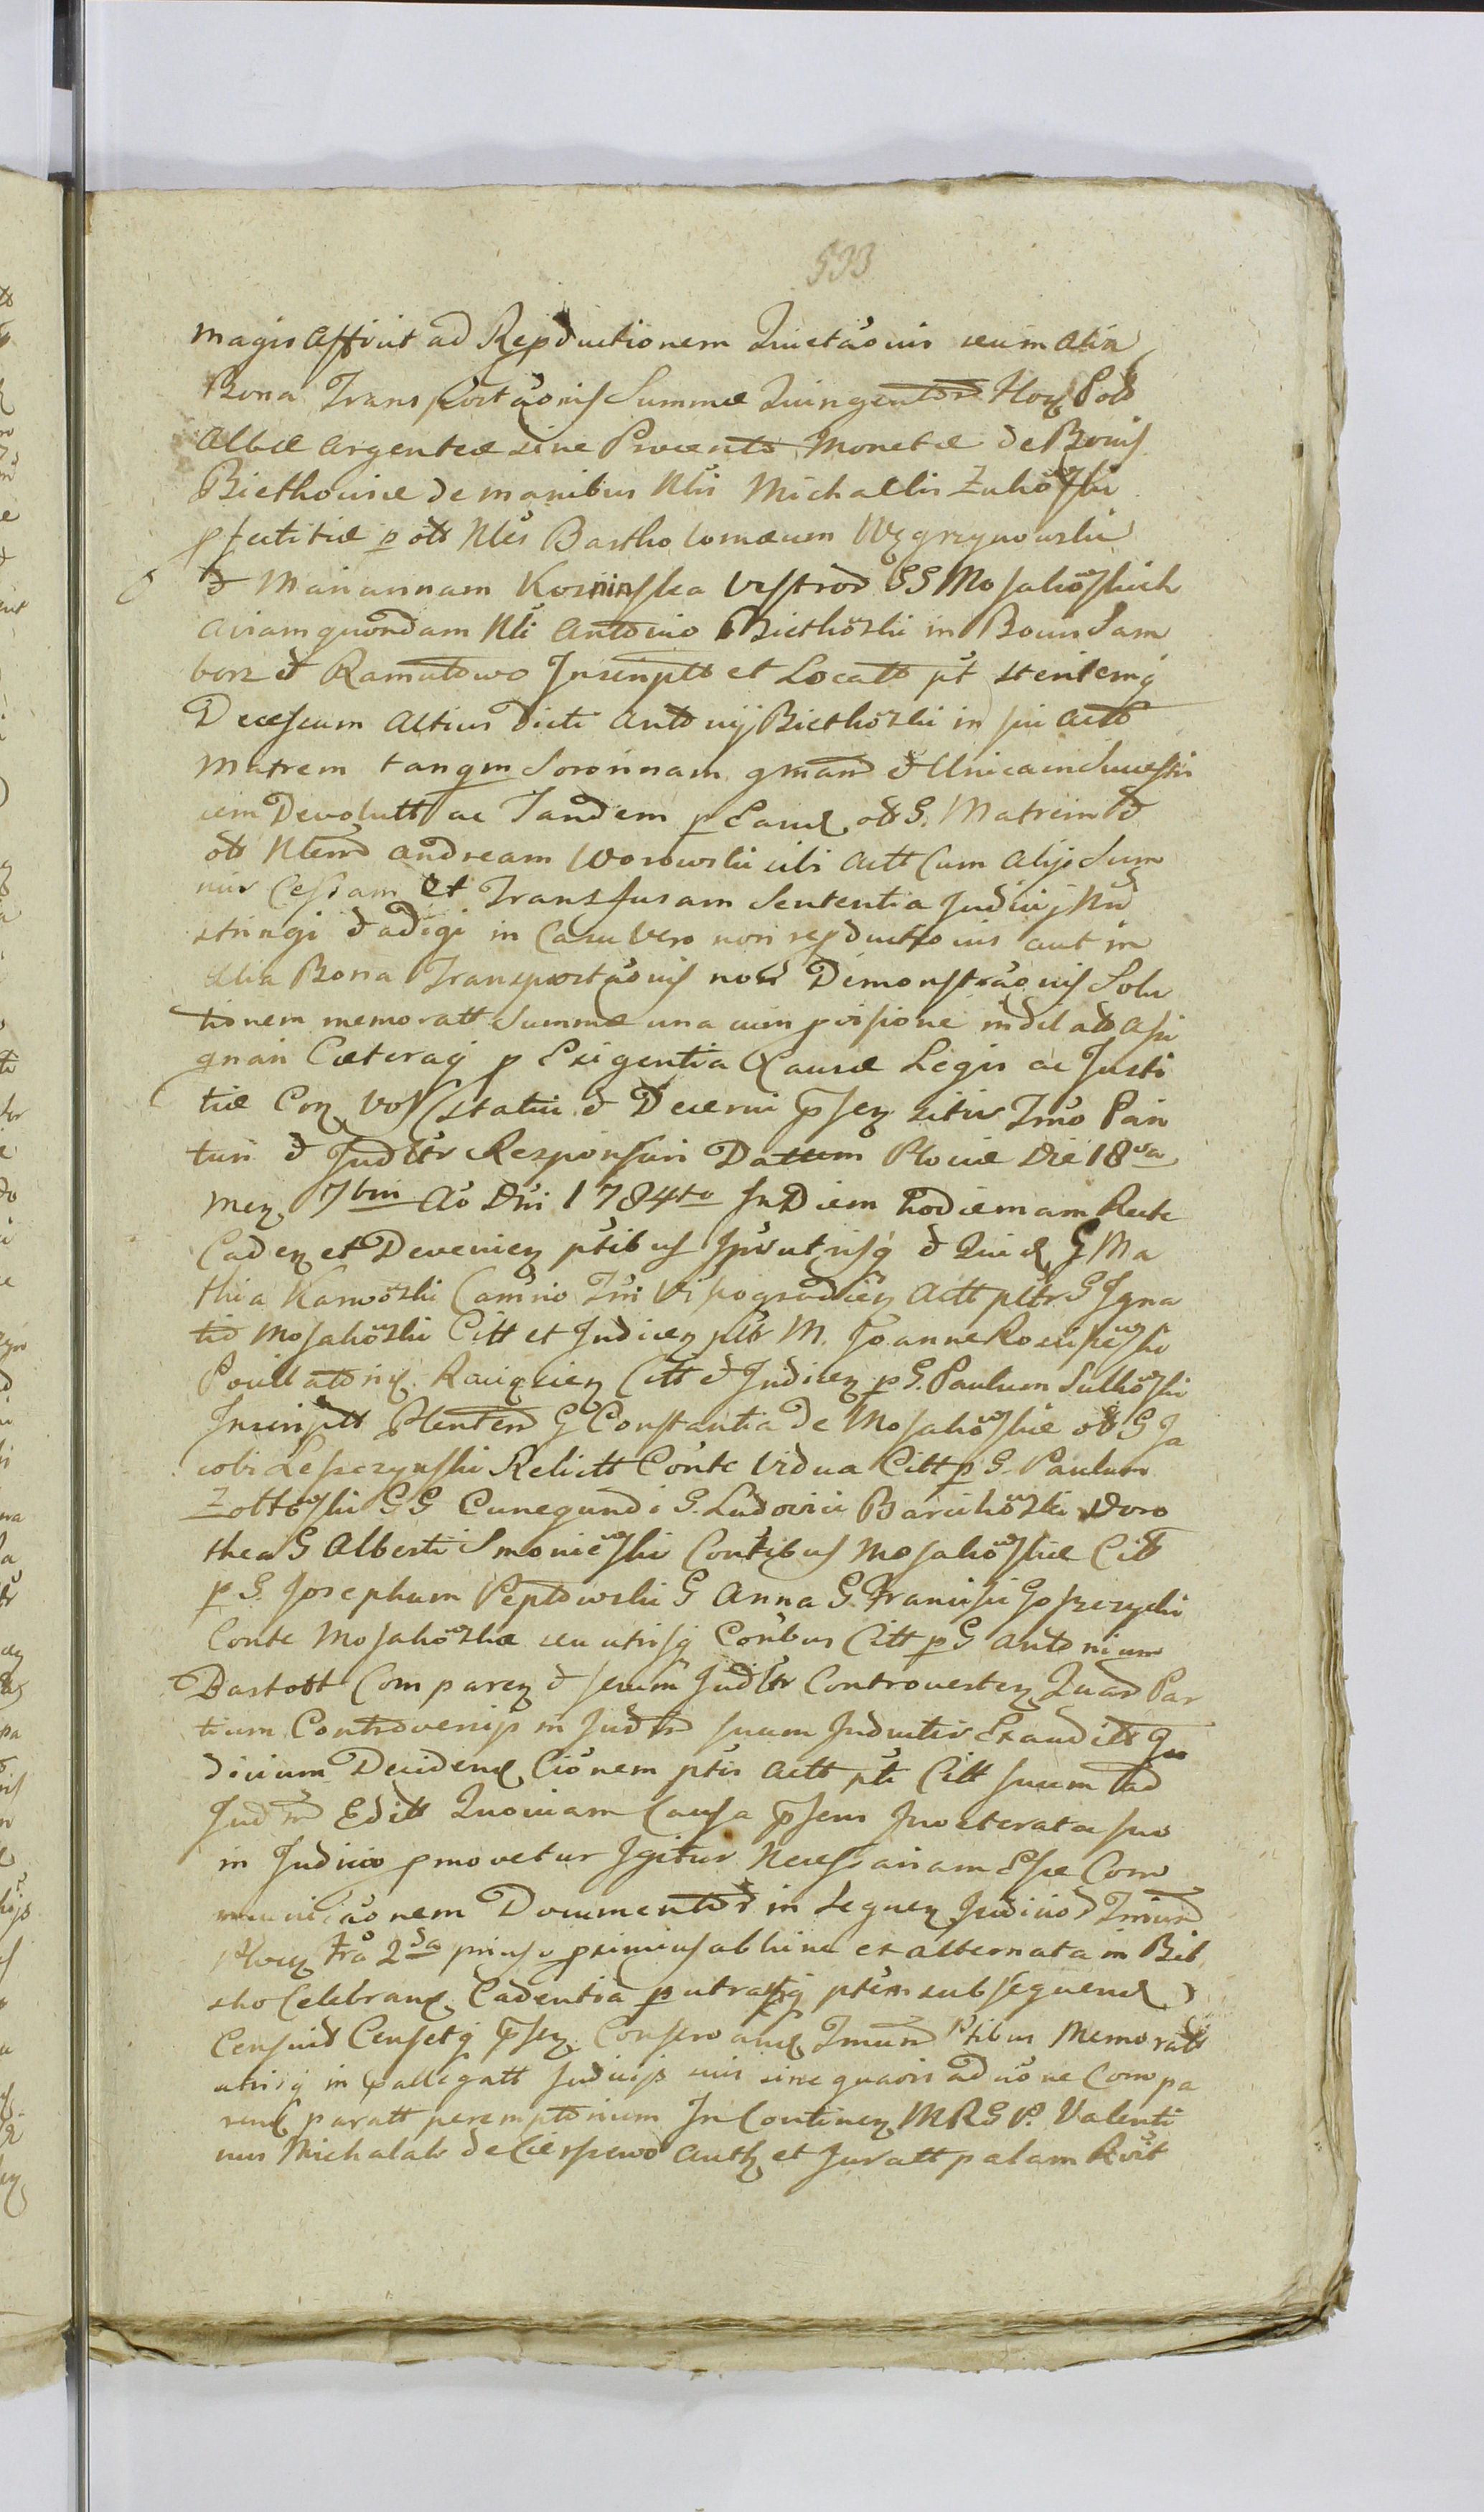 593
magis Affuit ad Repductionem Quietãonis seu in alia
Bona Transportãonis Summæ Quingentor Flor Pol
Albæ argenteæ sine Procento Monetæ de Bonis
Biethoviæ de manibus Nlis Michaelis Zukowski
p ots Nles Bartholomæum Węgrzynowski
& Mariannam Kosninska Vestrod GG Mosakowskich
Aviam quondam Nli Antonio Biethowski in Bonis Sam
borz & Ramutowo Inscriptt et Locatt pt
Decessum Altius dicti Antonij Biethowski in sui Actt
Matrem tanqm Sororinam gman & Unicam Successri
cem Devolutt ac Tandem p Eand ots G. Matrem &
ots Nlem Andream Worowski sibi Actt Cum Alijs Sum
mis Cessam et Transfusam Sententia Judicij Nri
stringi & adigi in Casu Vero non repductionis aut in
Alia Bona Transportãonis non Demonstrãonis Solu
tionem memoratt Summæ una cum pvisione indilatto Assi
gnari Cæteraq p Exigentia Causæ Legis ac Justi
tiæ Con Vos Statui & Decerni Psen Imo Pari
turi & Judltr Responsuri Datum Plociæ Die 18va
Men 7bris Ao Dni 1784to In Diem hodiernam Recte
Caden et Devenien ptibus Ipis utrisq & Quid G Ma
thia Karwowski Camrio Tri Vispogrodien Actt pltr G Igna
tio Mosakowski Citt et Judicen pltr M. Joanne Rosciszewski
Pocillatorid Raciązien Citt & Judicen p G. Paulum Sulkowski
Inscriptt Plenten G Constantia De Mosakowskie ots G Ja
cobi Leszczynski Relictt Conte Vidua Citt p G. Paulum
Zottowski GG Cunegundi G. Ludovici Barcikowski Doro
thea G Alberti Smoniewski Contibus Mosakowskie Citt
p G. Josephum Peptowski G Anna G. Francisci Goszczycki
Conte Mosakowska seu utrisq Conbus Citt p G Antonium
Bastott Comparen & secum Judltr Controverten Quar Par
tium Controversijs in Judm suum Inductis Exauditt Ju
dicium Deciden Cionem ptis Actt pti Citt suum ad
Judm Editt Quoniam Causa Psens Inveterata suo
in Judicio pmovetur Igitur Necessariam Esse Com
municãonem Documentor in Sequen Judicio Tmiur
Plocen Fra 2da primis eximius abhinc ex alternata in Biel
sko Celebrand Cadentia p utramq ptem subsequend
Censuit Censetq Psen Conservand Tmum Ptibus Memoratt
utrisq in pallegatt Judicijs suis sine quavis adcõne Compa
rend paratt peremptorium In Continen MRG P. Valenti
nus Michalak de Cierszewo Auth et Juratt palam Rvit